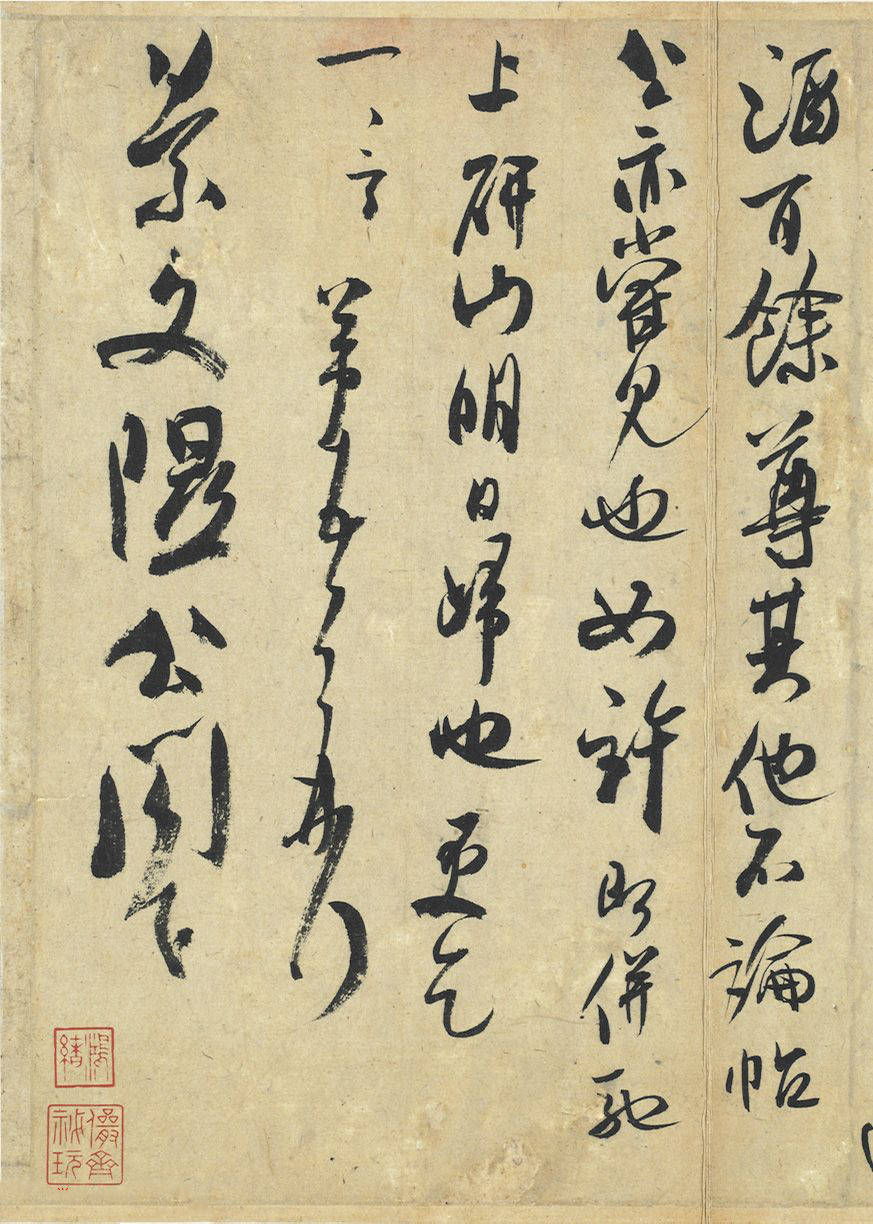 酒百餘尊其他不論帖
公亦嘗見也如許即併馳
上研山明日歸也更乞
一言芾頓首再拜
景文隰公閣下
鴻緒
儼齋
祕玩